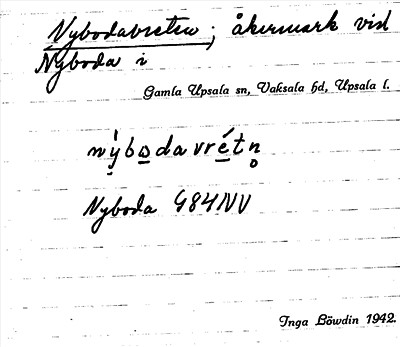 Nybodavreten; åkermark vid
Nyboda i
Gamla Upsala sn, Vaksala hd, Upsala l.
nẏ́bo̲davré̲tn̥
Nyboda 984NV
Inga Löwdin 1942.